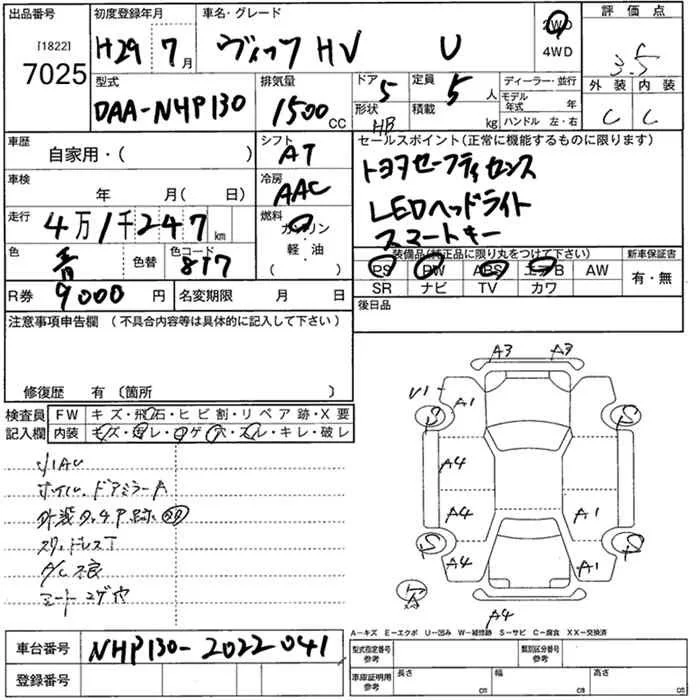 出品番号 初度登録年月 車名・グレード 評価点
[1822] 7025 H29 7月 ヴィッツ HV U 2WD 4WD 3.5
型式 排気量 ドア 定員 ディーラー・並行 外装 内装
DAA-NHP130 1500 CC 5 5人 モデル年式 年 C C
形状 HB 積載 kg ハンドル 左・右
車歴 シフト セールスポイント(正常に機能するものに限ります)
自家用・( ) AT トヨタセーフティセンス
車検 冷房 LEDヘッドライト
年 月( 日) AAC スマートキー
走行 燃料
4万1千247km ガソリン・軽・油 ( )
色 色コード 装備品(補正品に限り丸をつけて下さい) 新車保証書
青 色替 8W7 PS PW ABS エアB AW 有・無
SR ナビ TV カワ
R券 9000円 名変期限 月 日 後日品
注意事項申告欄 (不具合内容等は具体的に記入して下さい)
修復歴 有 〔箇所 〕
検査員 FW キズ・飛石・ヒビ割・リペア跡・X要
記入欄 内装 キズ・汚レ・コゲ・穴・スレ・キレ・破レ
ホイル、ドアミラーA
外装タッチP跡
スタッドレスT
A/C不良
シートコゲ穴
A3 A3
V1 A1
S S
A4
A4 A1
S S
A4 A1
A4
A-キズ E-エクボ U-凹み W-補修跡 S-サビ C-腐食 XX-交換済
車台番号 NHP130-2022041
型式指定番号 参考 類別区分番号 参考
登録番号
車庫証明用 参考 長さ cm 幅 cm 高さ cm